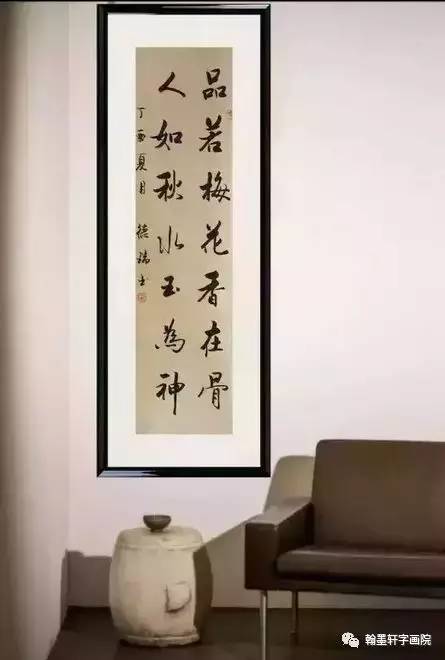 品若梅花香在骨
人如秋水玉為神
丁酉夏月 德瑞书
翰墨轩字画院